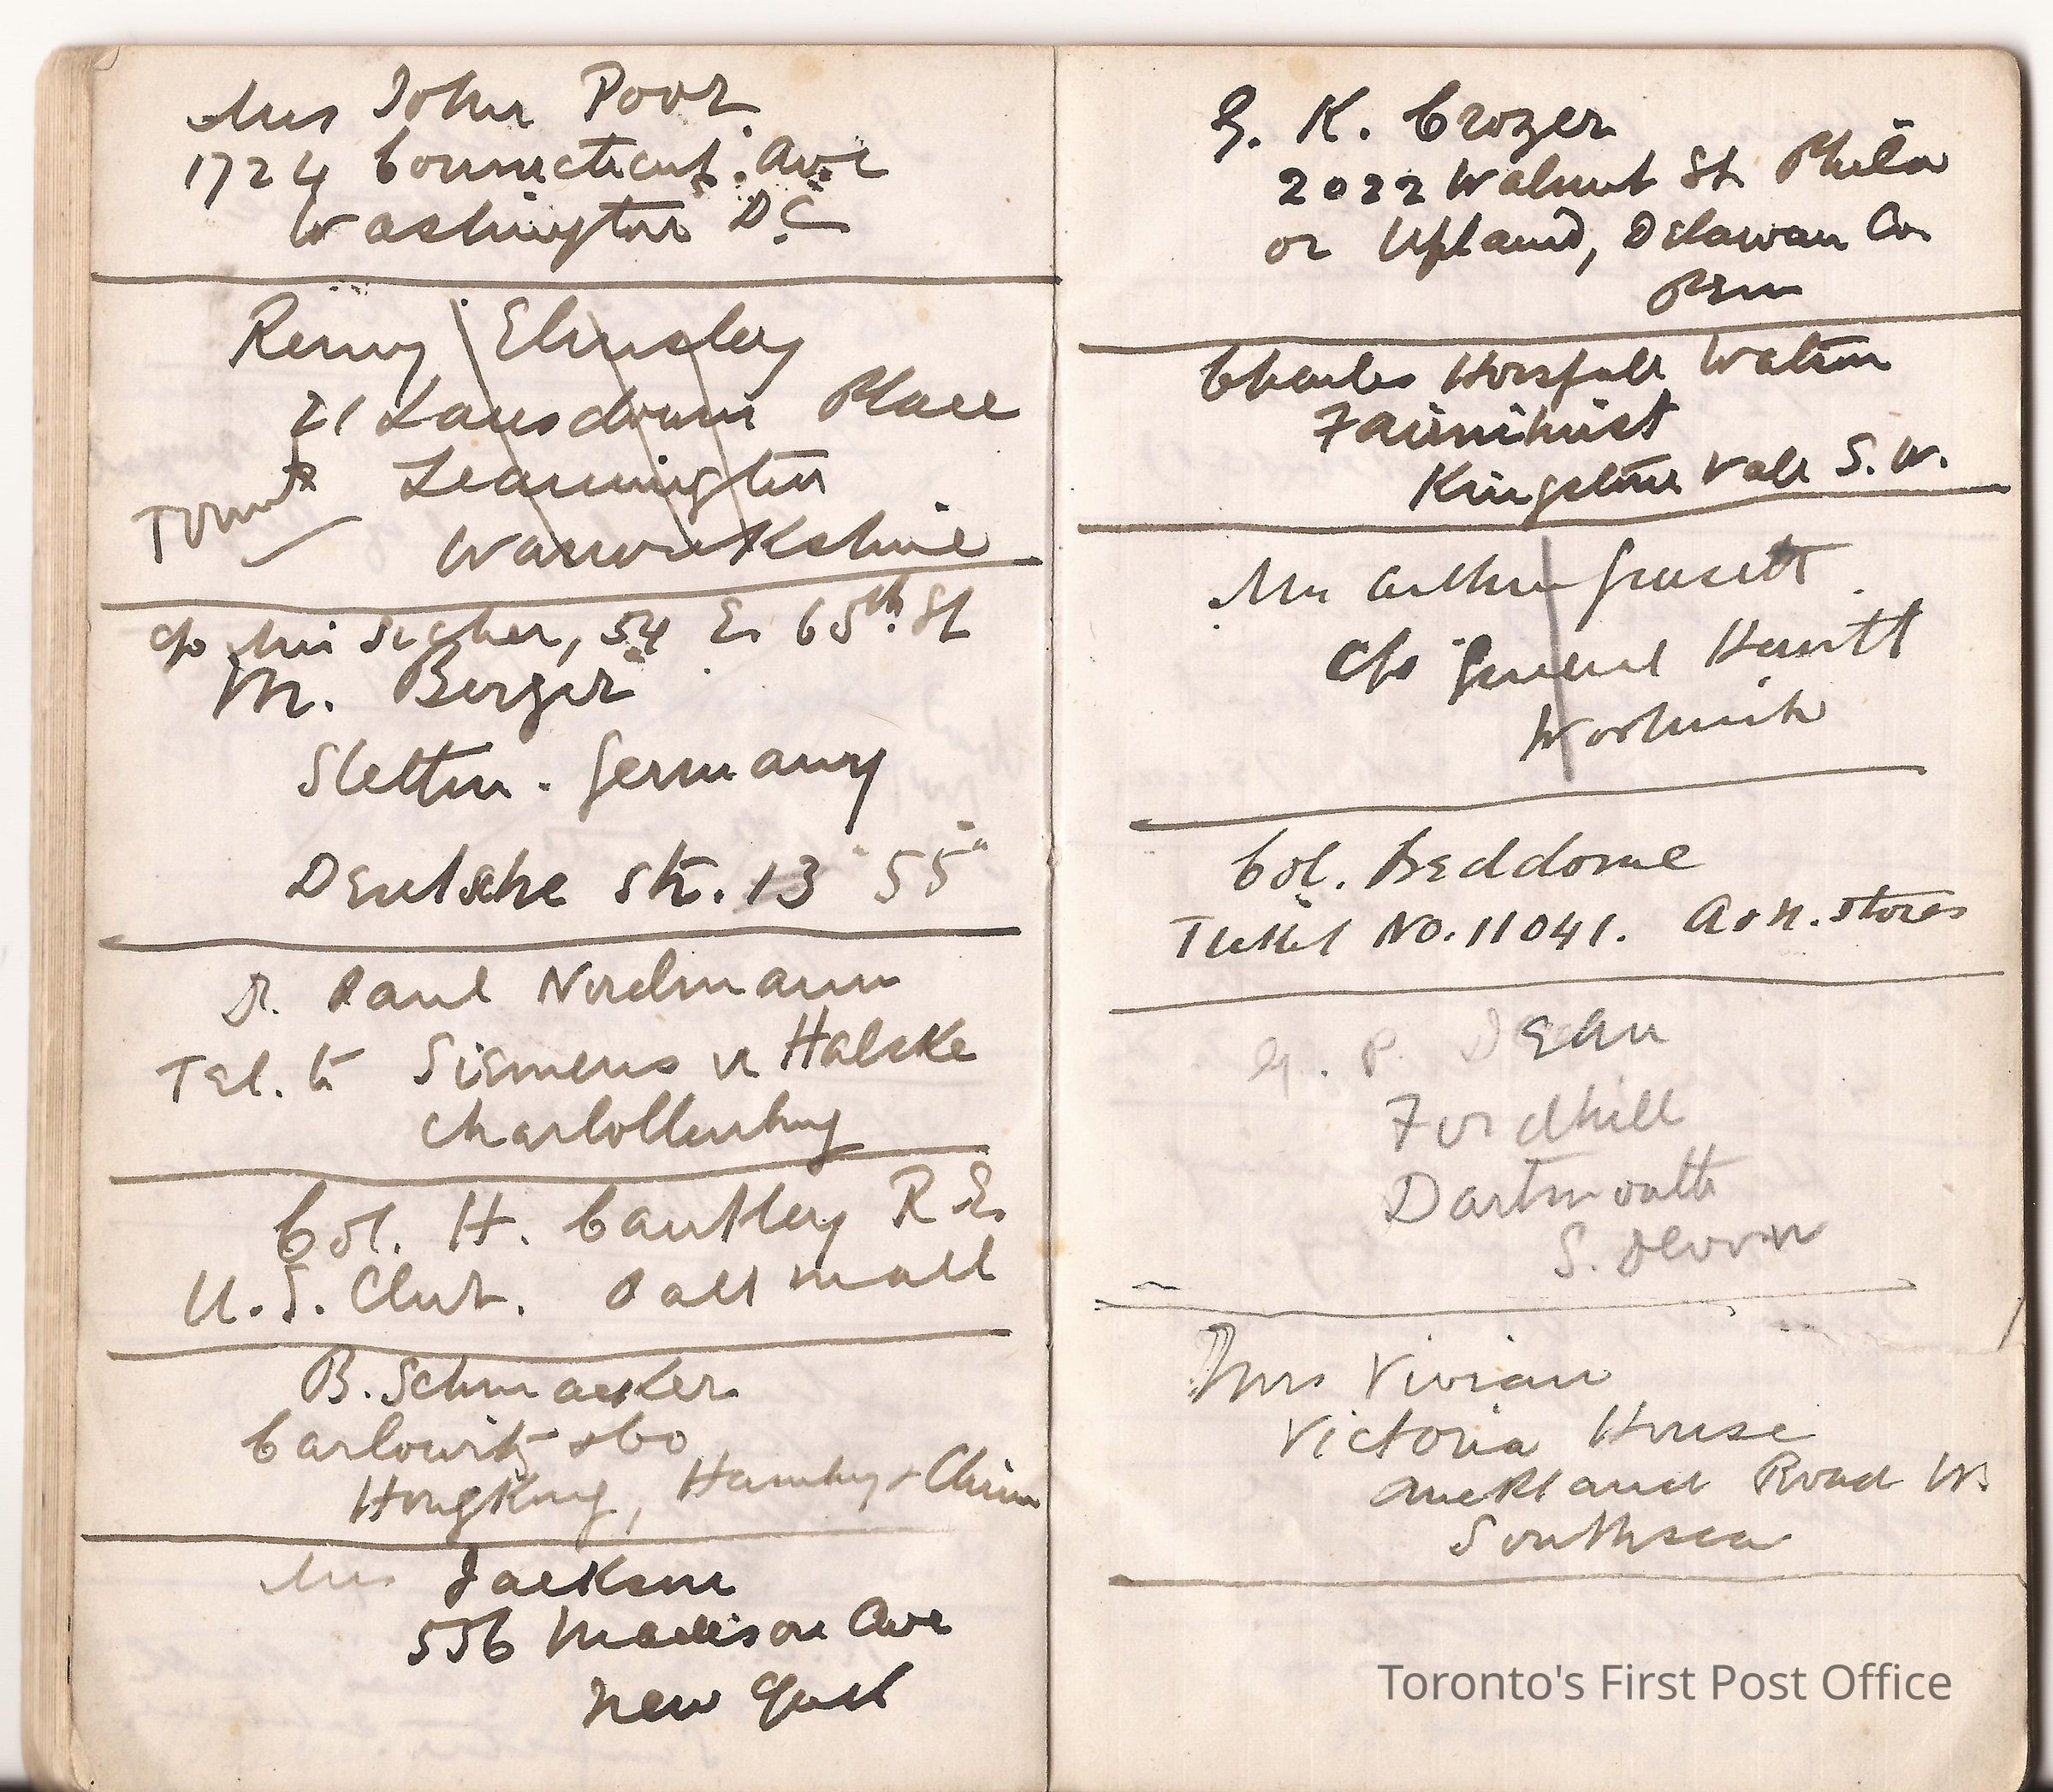 Mrs John Poor
1724 Connecticut. Ave
Washington D.C
Remy Elmsley
21 Lansdown Place
Toronto
Leamington
Warwickshire
c/o Miss Sicher, 54 E. 65th St
M. Berger
Stettin - Germany
Deutsche Str. 13 "55"
Dr. Paul Nordmann
Tel. to Siemens u Halske
Charlottenburg
Col. H. Cautley R.E.
U.S. Club. Pall Mall
B. Schmacker
Carlowitz & Co
HongKong, Hamburg & China
Mrs Jackson
556 Madison Ave
New York
G. K. Crozer
2022 Walnut St Phila
or Upland, Delaware Co.
Penn
Charles Horsfall Watson
Kingston Vale S.W.
Mrs Arthur Grasett
c/o General Hewitt
Woolwich
Col. Beddome
Ticket No. 11041. A & N. Stores
G. P. Dean
Fordhill
Dartmouth
S. Devon
Mrs Vivian
Victoria House
Auckland Road W.
Southsea
Toronto's First Post Office